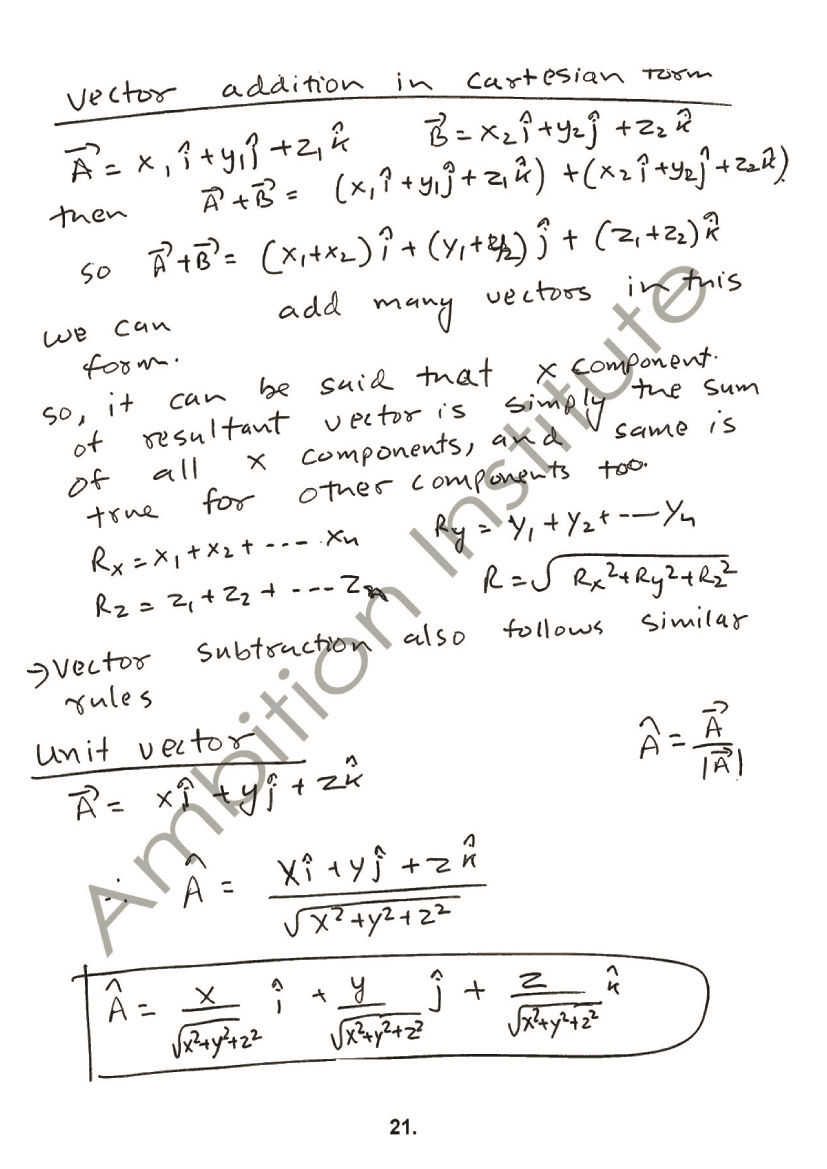 Vector addition in Cartesian form
A⃗ = x₁î + y₁ĵ + z₁k̂ B⃗ = x₂î + y₂ĵ + z₂k̂
then A⃗ + B⃗ = (x₁î + y₁ĵ + z₁k̂) + (x₂î + y₂ĵ + z₂k̂)
so A⃗ + B⃗ = (x₁+x₂)î + (y₁+y₂)ĵ + (z₁+z₂)k̂
we can add many vectors in this
form.
so, it can be said that x component
of resultant vector is simply the sum
of all x components, and same is
true for other components too.
Rx = x₁ + x₂ + ---- xn Ry = y₁ + y₂ + --- yn
Rz = z₁ + z₂ + --- zn R = √(Rx² + Ry² + Rz²)
→ Vector subtraction also follows similar
rules
Unit vector Â = A⃗ / |A⃗|
A⃗ = xî + yĵ + zk̂
∴ Â = (xî + yĵ + zk̂) / √(x²+y²+z²)
Â = x/√(x²+y²+z²) î + y/√(x²+y²+z²) ĵ + z/√(x²+y²+z²) k̂
21.
Ambition Institute